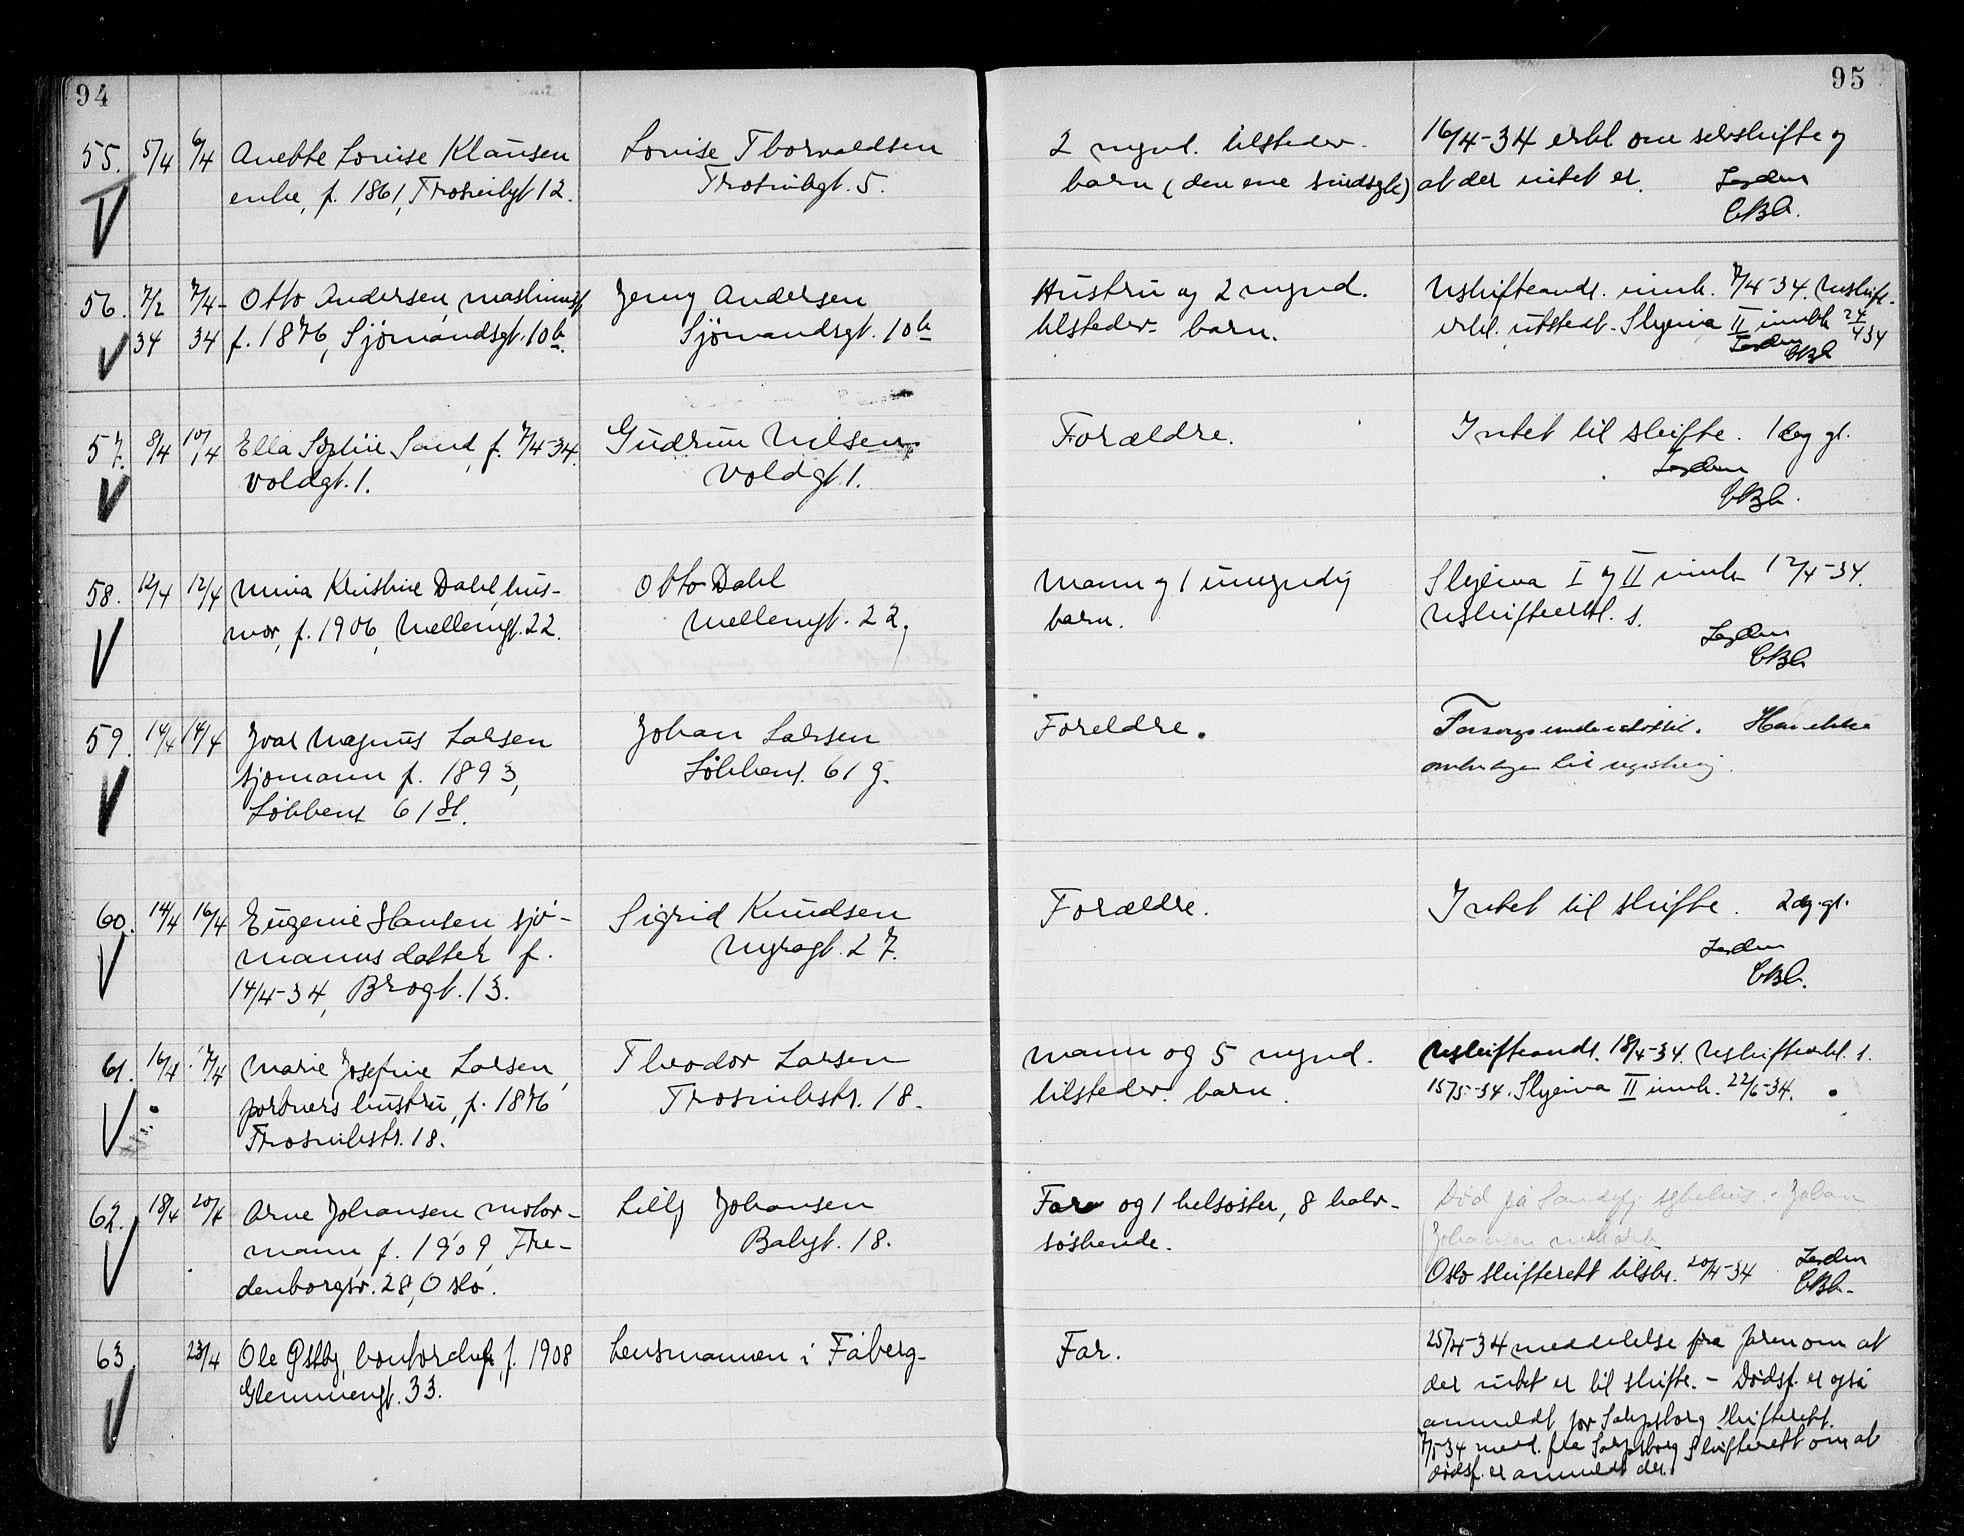 94
95
55. 5/4 6/4 Anette Louise Klausen Louise Thorvaldsen 2 mynd. tilstedev. 16/4-34 erkl. om selvskifte og
enke, f. 1861, Trosvikgt 12. Trosvikgt. 5. barn (den ene sindsyk) at der intet er.
56. 7/2 7/4- Otto Andersen, maskinist Jenny Andersen Hustru og 2 mynd. Uskifteandr. innk. 7/4-34. Uskift.
34 34 f. 1876, Sjömandsgt. 10b. Sjömandsgt. 10b tilstedev. barn. erkl. utstedt. Skjema II innk. 24/4 34
57. 8/4 10/4 Ella Sophie Sand, f. 7/4-34. Gudrun Nilsen Forældre. Intet til skifte. 1 dag gl.
Voldgt. 1. Voldgt. 1.
58. 12/4 12/4 Minia Kristine Dahl, hus- Otto Dahl Mann og 1 umyndig Skjema I og II innk. 12/4-34.
mor, f. 1906, Mellemgt. 22. Mellemgt. 22. barn. Uskifteerkl. s.
59. 14/4 14/4 Ivar Magnus Larsen Johan Larsen Foreldre. Forsorgsunderstøttet. Har ikke
sjømann f. 1893, Løkkent 61 g. til
Løkkent 61
60. 14/4 16/4 Eugenie Hansen sjö- Sigrid Knudsen Forældre. Intet til skifte. 2 dg. gl.
manns datter f. Nyragt. 27.
14/4-34, Brogt. 13.
61. 16/4 17/4 Marie Josefine Larsen, Theodor Larsen Mann og 5 mynd. Uskifteandr. 18/4-34. Uskifteerkl. s.
portners hustru, f. 1876 Trosvikstr. 18. tilstedev. barn. 15/5-34. Skjema II innk. 22/6-34.
Trosvikstr. 18.
62. 18/4 20/4 Arne Johansen motor- Lilly Johansen Far og 1 helsøster, 8 halv- Død på Sandefj. sykehus. Johan
mann, f. 1909, Fre- Bakgt. 18. søskende. Johansen
denborgsv. 28, Oslo. Oslo skifterett tilskr. 20/4-34
63 23/4 Ole Østby, kontorchef, f. 1908 Lensmannen i Fåberg Far. 25/4-34 meddelelse fra faren om at
Glemmengt. 33. der intet er til skifte. - Dødsf. er også
anmeldt for Sarpsborg skifterett.
7/5-34 medd. fra Sarpsborg skifterett om at
dødsf. er anmeldt der.